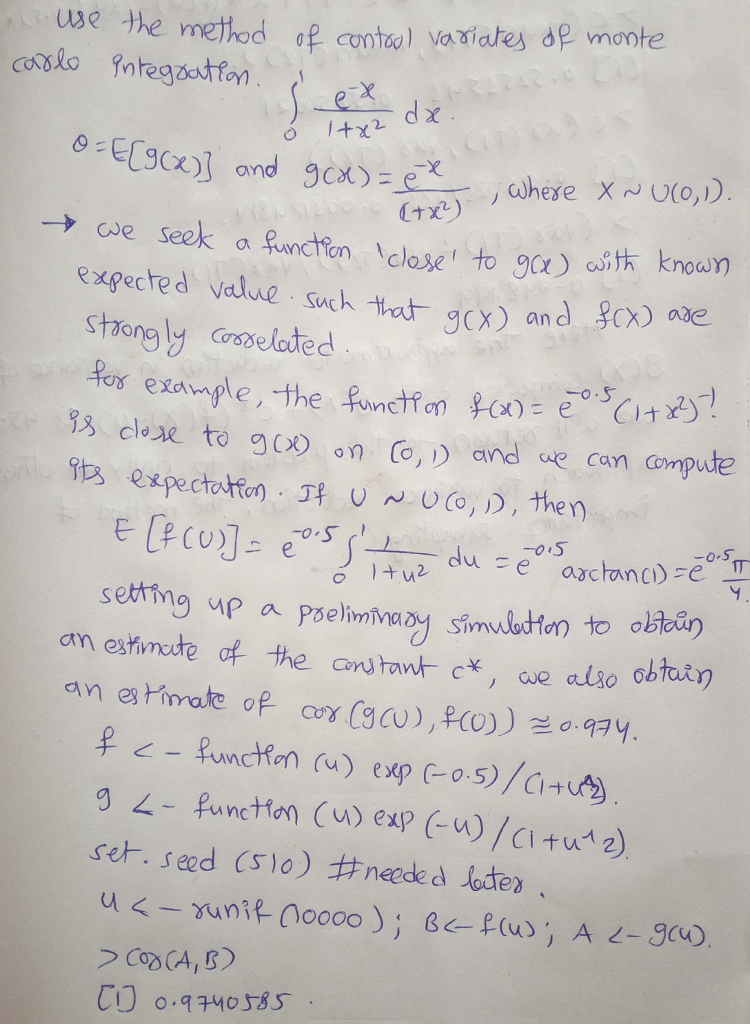 use the method of control variates of monte
carlo Integration.
∫₀¹ e^-x / 1+x² dx.
θ = E[g(x)] and g(x) = e^-x / (1+x²), where X ~ U(0,1).
→ we seek a function 'close' to g(x) with known
expected value. such that g(X) and f(X) are
strongly correlated.
for example, the function f(x) = e^-0.5 (1+x²)^-1
is close to g(x) on (0,1) and we can compute
its expectation. If U ~ U(0,1), then
E[f(U)] = e^-0.5 ∫₀¹ 1/1+u² du = e^-0.5 arctan(1) = e^-0.5 π/4.
setting up a preliminary simulation to obtain
an estimate of the constant c*, we also obtain
an estimate of cor(g(U), f(U)) ≅ 0.974.
f <- function (u) exp (-0.5)/(1+u^2).
g <- function (u) exp (-u)/(1+u^2).
set.seed (510) #needed later.
u <- runif (10000); B <- f(u); A <- g(u).
> cor(A,B)
[1] 0.9740585.